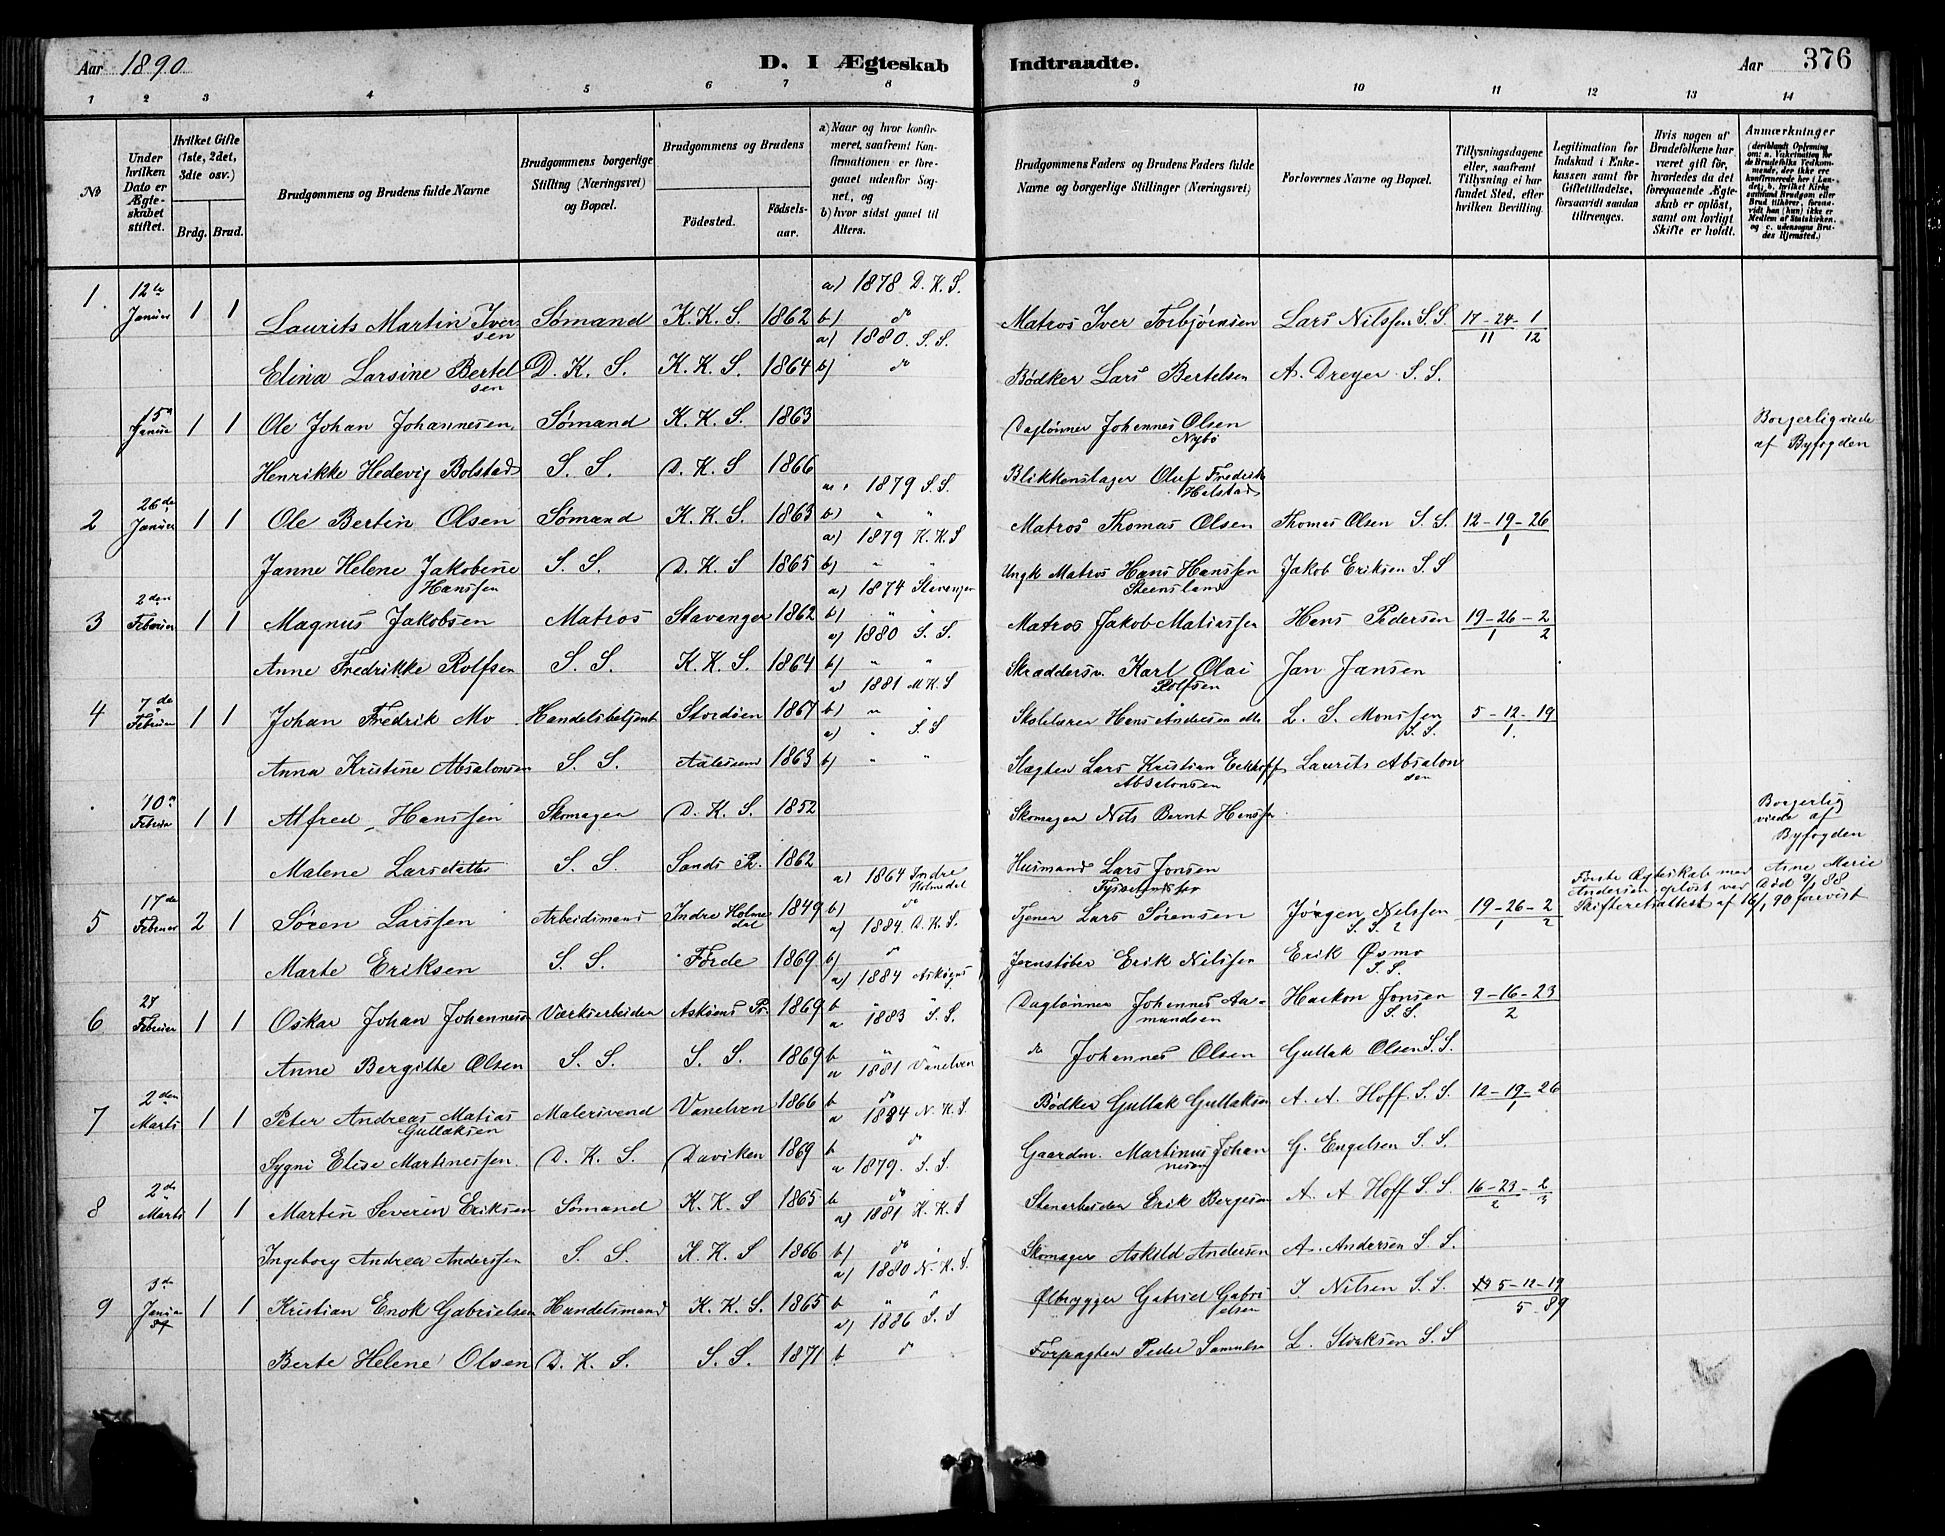 Aar 1890
D. I Ægteskab Indtraadte.
Aar 376
1 2 3 4 5 6 7 8 9 10 11 12 13 14
No
Under hvilken Dato er Ægteskabet stiftet.
Hvilket Gifte (1ste, 2det, 3die osv.)
Brdg. Brud.
Brudgommens og Brudens fulde Navne
Brudgommens borgerlige Stilling (Næringsvei) og Bopæl.
Brudgommens og Brudens
Fødested. Fødselsaar.
a) Naar og hvor konfirmeret, saafremt Konfirmationen er foregaaet udenfor Sognet, og
b) hvor sidst gaaet til Alters.
Brudgommens Faders og Brudens Faders fulde Navne og borgerlige Stillinger (Næringsvei)
Forlovernes Navne og Bopæl.
Tillysningsdagene eller, saafremt Tillysning ei har fundet Sted, efter hvilken Bevilling.
Legitimation for Indskud i Enkekassen samt for Giftetilladelse, forsaavidt saadan tiltrænges.
Hvis nogen af Brudefolkene har været gift før, hvorledes da det foregaaende Ægteskab er opløst, samt om lovligt Skifte er holdt.
Anmærkninger
1. 12te Januar 1 1 Laurits Martin Iversen Sømand K. K. S. 1862 a) 1878 D. K. S. b) do Matros Iver Torbjørnsen Lars Nilssen S. S. 17-24-1 11 12
Elina Larsine Bertelsen D. K. S. K. K. S. 1864 a) 1880. S. S. b) do Bødker Lars Bertelsen A. Dreyer S. S.
15 Janua 1 1 Ole Johan Johannesen Sømand K. K. S. 1863 Daglønner Johannes Olsen Nybø Borgerlig viede af Byfogden
Henrikke Hedevig Bolstad S. S. D. K. S 1866 Blikkenslager Oluf Fredrik
2 26de Januar 1 1 Ole Bertin Olsen Sømand K. K. S. 1863 a) 1879 S. S. b) " " Matros Thomas Olsen Thomas Olsen S. S. 12-19-26 1
Janne Helene Jakobine Hanssen S. S. D. K. S 1865 a) 1879 K. K. S b) " " Ungk Matros Hans Hanssen Steensland Jakob Eriksen S. S
3 2den Februar 1 1 Magnus Jakobsen Matros Stavanger 1862 a) 1874 Stavanger b) " " Matros Jakob Matiassen Hans Pedersen 19-26-2 1 2
Anne Fredrikke Rolfsen S. S. K. K. S. 1864 a) 1880 S. S. b) " " Skræddersv. Karl Olai Rolfsen Jan Jansen
4 7de Februar 1 1 Johan Fredrik Mo Handelsbetjent Stordøen 1867 a) 1881 M. K. S b) " " Skolelærer Hans Andersen Mo L. S. Monssen S. S. 5-12-19 1.
Anna Kristine Absalonsen S. S. Aalesund 1863 a) " S. S b) " " Slagter Lars Kristian Eckhoff Absalonsen Laurits Absalonsen
10 Februar 1 1 Alfred Hanssen Skomager D. K. S. 1852 Skomager Nils Bernt Hanssen Borgerlig viede af Byfogden
Malene Larsdatter S. S. Sands Pr. 1862 Husmand Lars Jonsen
5 17de Februar 2 1 Søren Larssen Arbeidsmand Indre Holmedal 1849 a) 1864 Indre Holmedal b) do Tjener Lars Sørensen Jørgen Nilssen S. S. 19-26-2 1 2 Første Ægteskab med Anne Marie Andersen opløst ved Død 9/1 88 Skifteretsattest af 16/1 90 forevist
Marte Eriksen S. S. Førde 1869 a) 1884 D. K. S. b) do Jernstøber Erik Nilssen Erik Øsmo S. S.
6 23 Februar 1 1 Oskar Johan Johannesen Værksarbeider Askøens Pr. 1869 a) 1884 Askøens b " " Daglønner Johannes Aamundsen Haakon Jonsen S. S. 9-16-23 2
Anne Bergitte Olsen S. S. S. S. 1869 a 1883 S. S. b " " do Johannes Olsen Gullak Olsen S. S.
7 2den Marts 1 1 Peter Andreas Matias Gullaksen Malersvend Vanelven 1866 a 1881 Vanelven b do Bødker Gullak Gullaksen A. A. Hoff S. S. 12-19-26 1
Sygni Elise Martinessen D. K. S. Daviken 1869 a 1884 N. K. S. b do Gaardm. Martinus Johannesen G. Engelsen S. S.
8 2de Marts 1 1 Martin Severin Eriksen Sømand K. K. S 1865 a 1879. S. S. b do Stenarbeider Erik Bergesen A. A Hoff S. S. 16-23-2 2 3
Ingeborg Andrea Anderssen S. S. K. K. S 1866 a) 1881 K. K. S b) do Skomager Askild Andersen A. Andersen S. S.
9 3de Janua 1 1 Kristian Enok Gabrielsen Handelsmand K. K. S. 1865 a) 1880 N. K. S. b " " Ølbrygger Gabriel Gabrielsen J. Nilsen S. S. 5-12-19 5-89
Berte Helene Olsen D. K. S. S. S. 1871 a) 1886 S. S b do Forpagter Peder Samuelse L. Størksen S. S